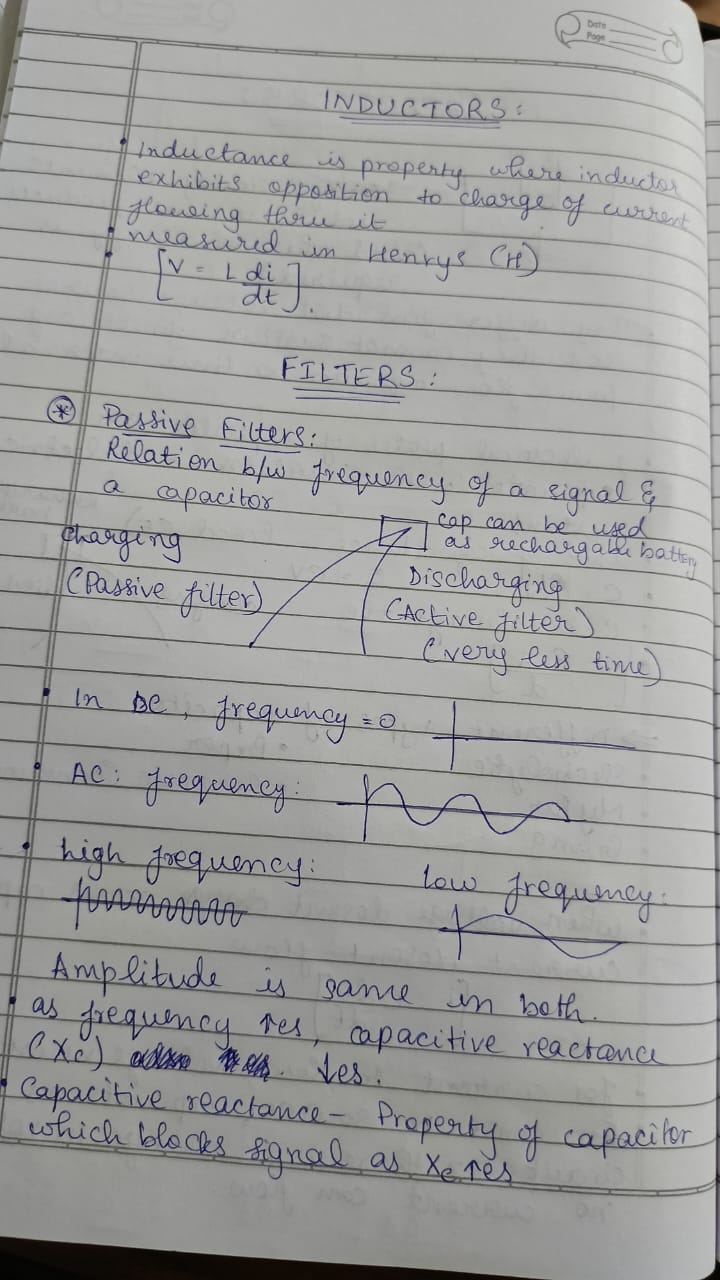 Date
Page
INDUCTORS:
Inductance is property where inductor
exhibits opposition to charge of current
flowing thru it
measured in Henrys (H)
[V = L di/dt].
FILTERS:
* Passive Filters:
Relation b/w frequency of a signal &
a capacitor
cap can be used
as rechargable battery
charging
(Passive filter)
Discharging
(Active filter)
(very less time)
In DC, frequency = 0
AC: frequency:
high frequency:
low frequency:
Amplitude is same in both.
as frequency ↑es, capacitive reactance
(Xc) ↓es.
Capacitive reactance - Property of capacitor
which blocks signal as Xc ↑es